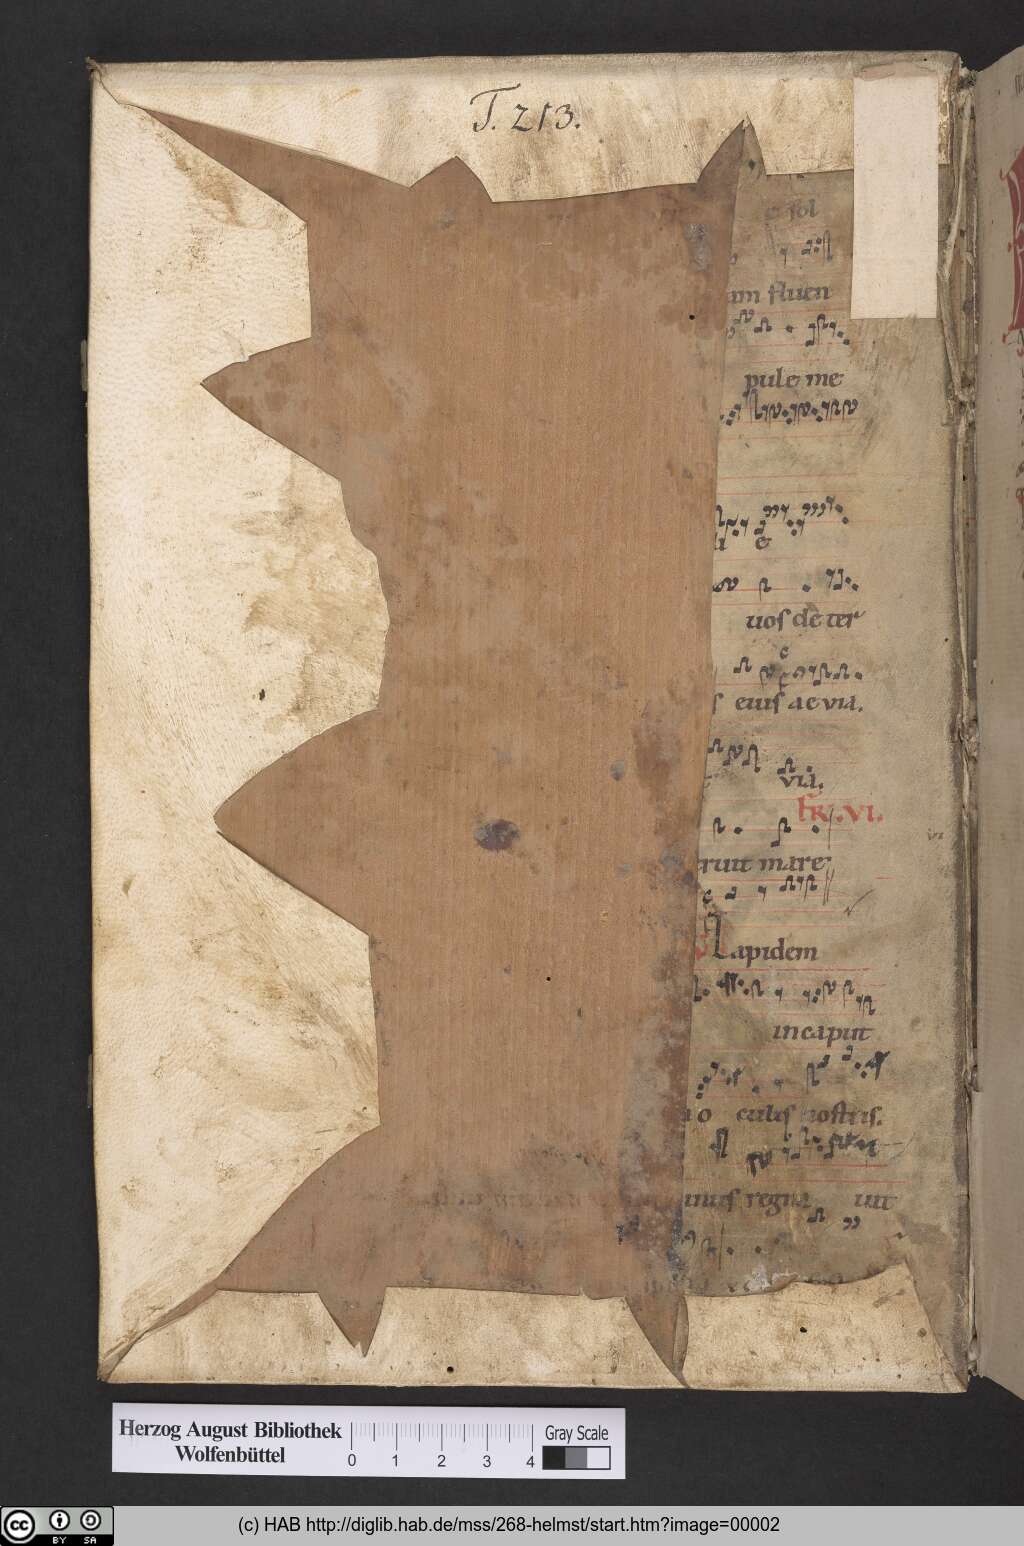 T. 213.
& sol
am fluen
pule me
&
uos de ter
s eius ac via.
via.
FR. VI.
VI
ruit mare
Lapidem
in caput
o culis nostris.
inus regna uit
Herzog August Bibliothek
Wolfenbüttel
0 1 2 3 4
Gray Scale
cc BY SA
(c) HAB http://diglib.hab.de/mss/268-helmst/start.htm?image=00002